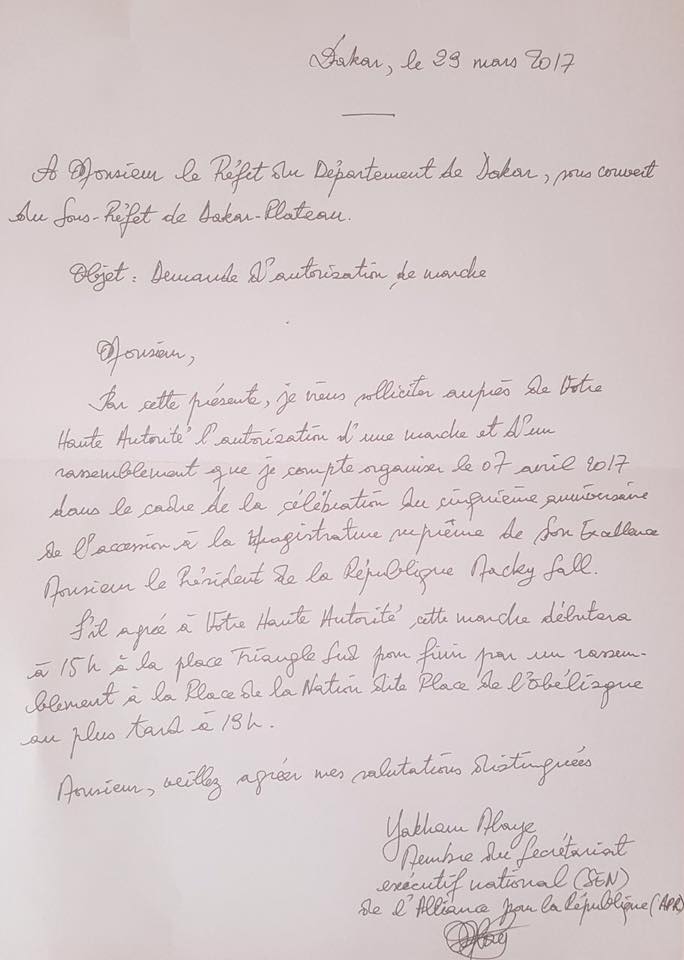 Dakar, le 29 mars 2017
A Monsieur le Préfet du Département de Dakar, sous couvert
du Sous-Préfet de Dakar-Plateau.
Objet : Demande d'autorization de marche
Monsieur,
Par cette présente, je viens solliciter auprès de Votre
Haute Autorité l'autorization d'une marche et d'un
rassemblement que je compte organiser le 07 avril 2017
dans le cadre de la célébration du cinquième anniversaire
de l'accession à la Magistrature suprême de Son Excellence
Monsieur le Président de la République Macky Sall.
S'il agrée à Votre Haute Autorité, cette marche débutera
à 15h à la place Triangle Sud pour finir par un rassem-
blement à la Place de la Nation dite Place de l'Obélisque
au plus tard à 19h.
Monsieur, veillez agréer mes salutations distinguées
Yakham Mbaye
Membre du Secrétariat
exécutif national (SEN)
de l'Alliance pour la République (APR)